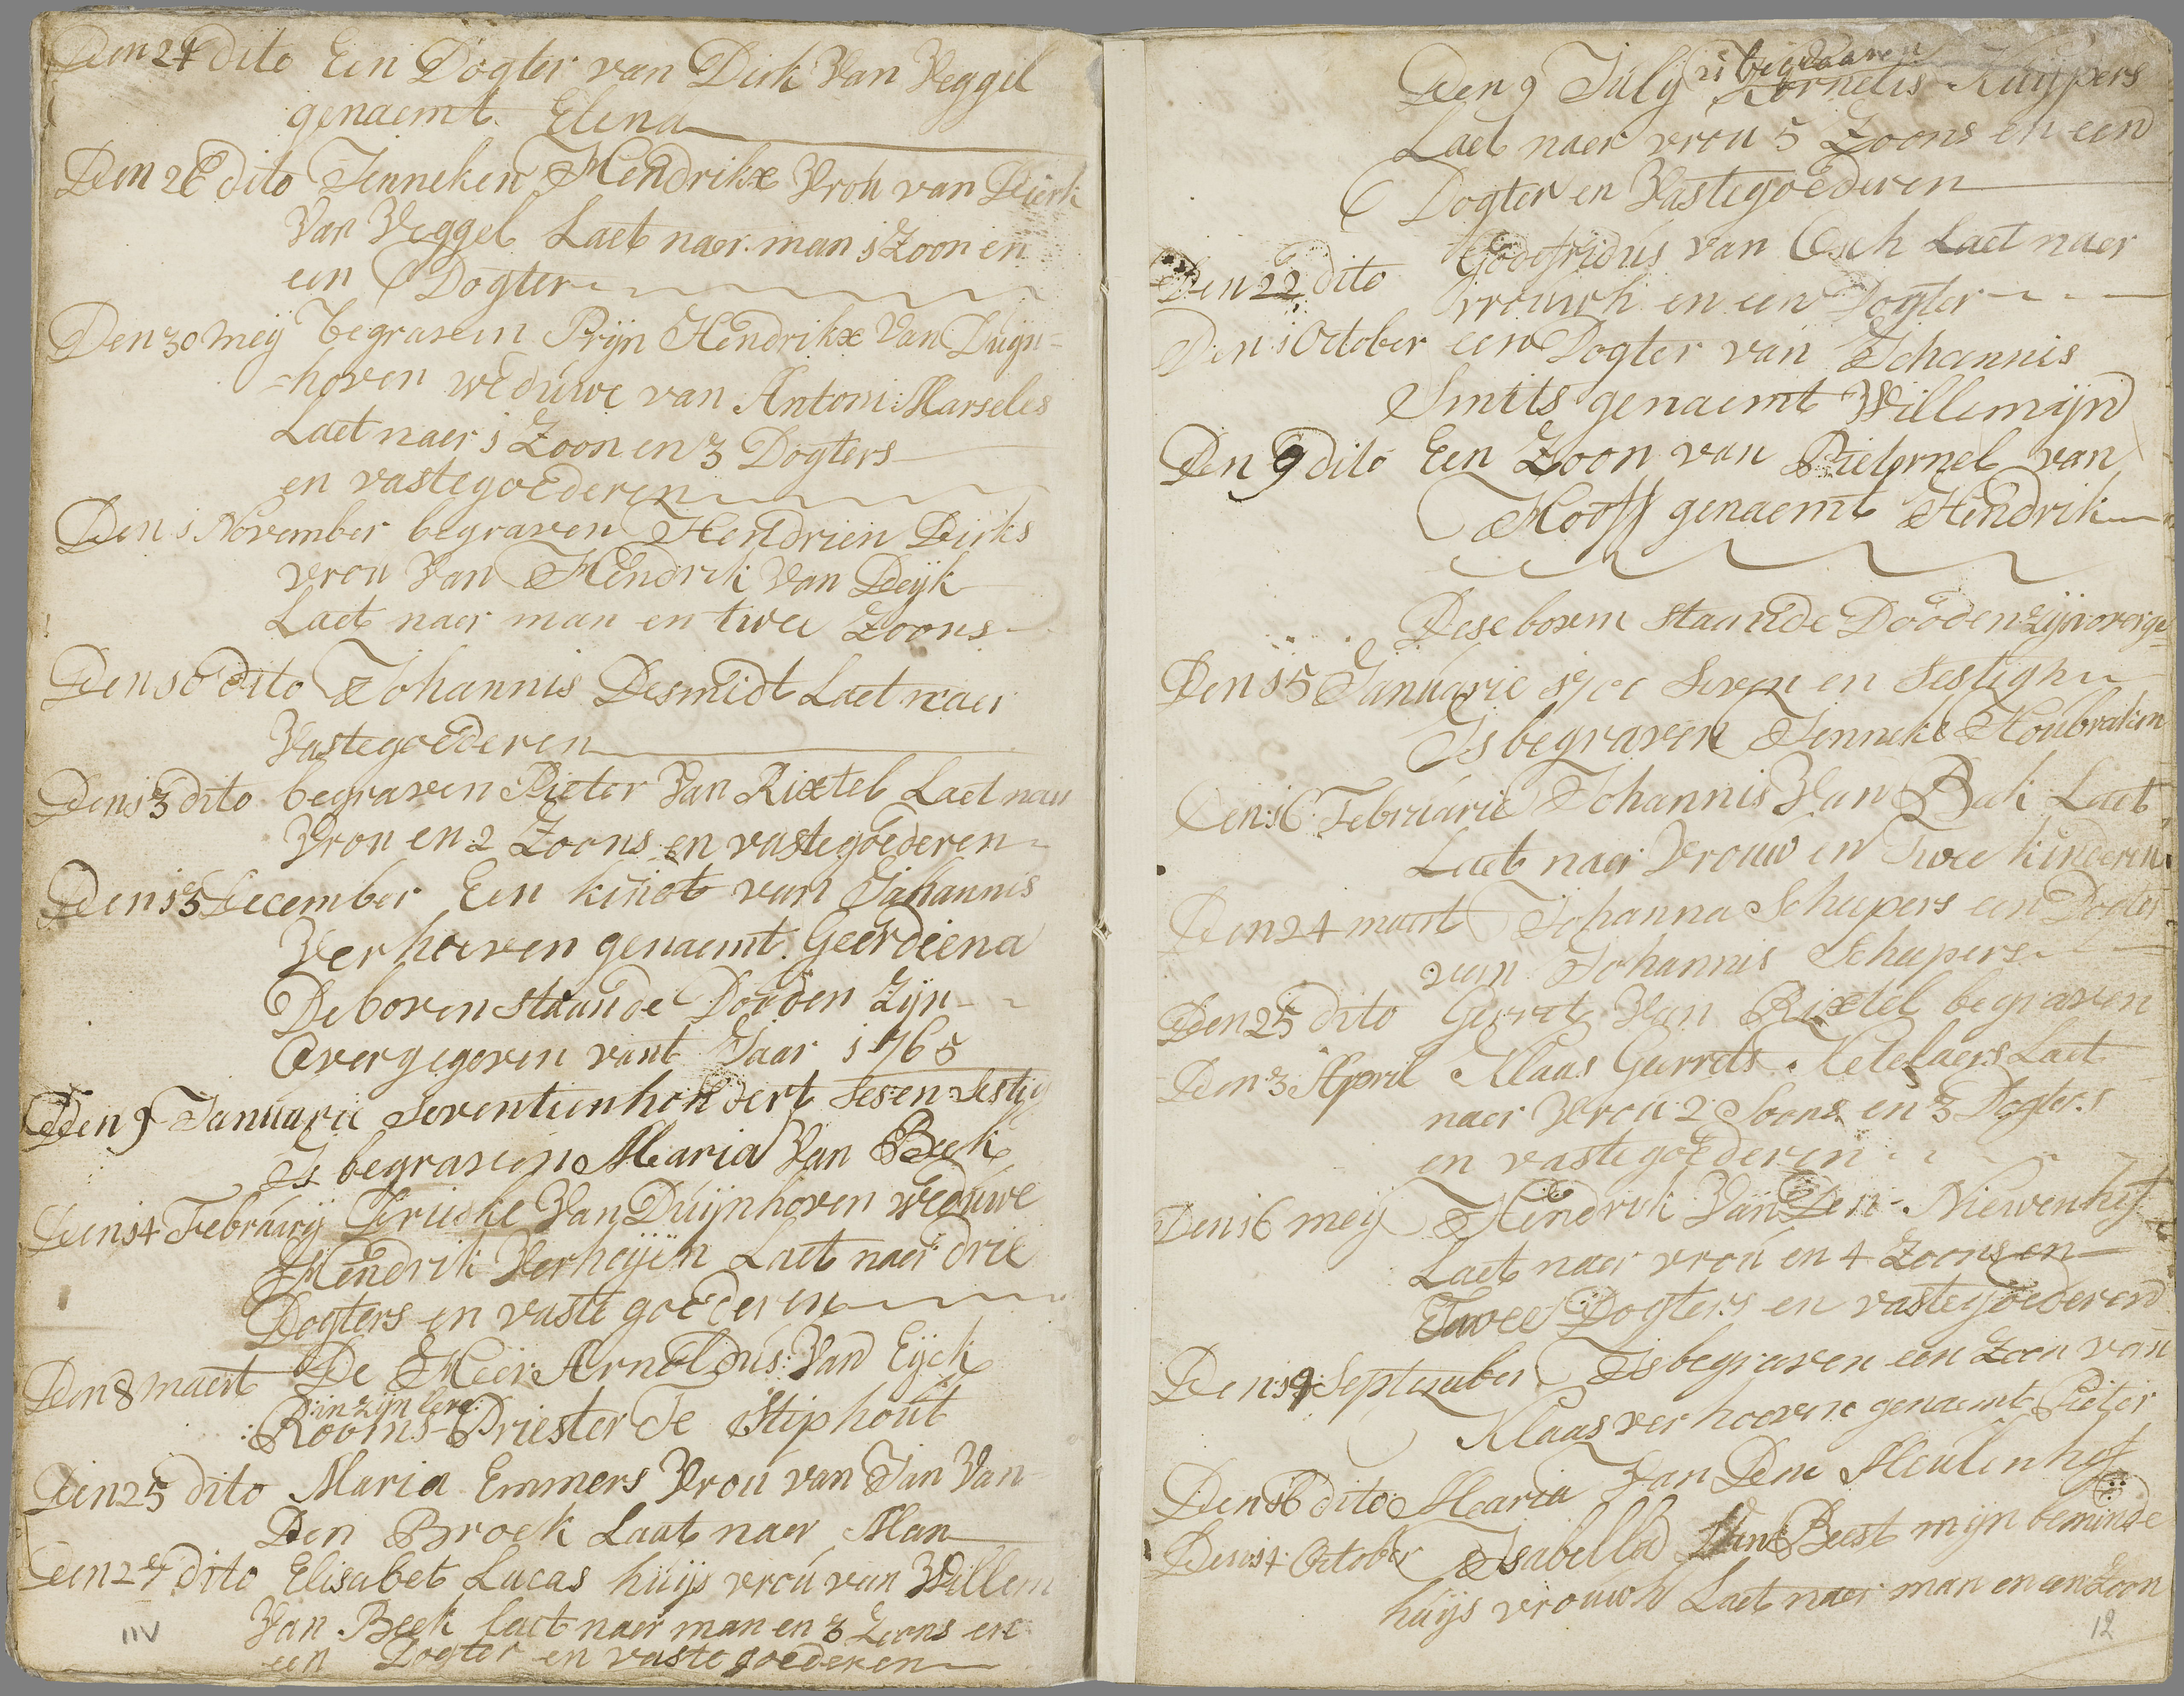 Den 24 dito Een Dogter van Dirk Van Veggel
genaemt Elena
Den 26 dito Jenneken Hendrikx Vrou van Dierk
Van Veggel Laet naer man 1 Zoon en
een Dogter
Den 30 meij begraven Prijn Hendrikx Van Duijn=
=hoven weduwe van Antoni Marseles
Laet naer 1 Zoon en 3 Dogters
en vastegoederen
Den 1 November begraven Hendrien Dirks
vrou Van Hendrik Van Deijk
Laet naer man en twee Zoons
Den 10 dito Johannis Desmidt Laet naer
Vastegoederen
Den 13 dito begraven Pieter Van Rixtel Laet naer
Vrou en 2 Zoons en vastegoederen
Den 15 December Een kindt van Johannis
Verhoeven genaemt Geerdiena
De boven staande Dooden Zijn
Overgegeven vant Jaar 1765
Den 9 Januarii Seventienhondert Ses en Sestig
Is begraven Maria Van Beek
Den 14 Februarij Driecke Van Duijnhoven weduwe
Hendrik Verheijen Laet naer drie
Dogters en vaste goederen
Den 8 maert De Heer Arnoldus Van Eijck
:in zijn leve:
Rooms Priester Te Stiphout
Den 25 dito Maria Emmers Vrou van Jan Van
Den Broek Laat naer Man
Den 27 dito Elisabet Lucas huijs vrou van Willem
Van Beek laet naer man en 3 Zoons en
een Dogter en vaste goederen
11V
is begraaven
Den 9 Julij Kornelis Kuijpers
Laet naer vrou 5 Zoons en een
Dogter en Vastegoederen
Den 22 dito Godefridus van Osch Laet naer
vrouwh en een Dogter
Den 1 October een Dogter van Johannis
Smits genaemt Willemijn
Den 9 dito Een Zoon van Pieternel van
Hooff genaemt Hendrik
Dese boven staande Dooden zijn overge=
Den 15 Januarie 1700 Seven en Sestigh
Is begraven Jenneke Houbraken
Den 16 Februarie Johannis Van Beek Laet
Laet naer Vrouw en Twee kinderen
Den 24 maert Johanna Schepers een Dogter
van Johannis Schepers
Den 25 dito Gerret Van Rixtel begraven
Den 3 April Klaas Gerrets Ketelaers Laet
naer Vrou 2 Soons en 3 Dogters
en vastegoederen
Den 16 meij Hendrik Van Den Niewenhof
Laet naer vrou en 4 Zoons en
Twee Dogters en vastegoederen
Den 14 September Is begraven een Zoon van
Klaas verhoeven genaemt Pieter
Den 16 dito Maria Van Den Meulenhof
Den 14 October Isabella Van Beest mijn beminde
huijs vrouwh Laet naer man en een Zoon
12